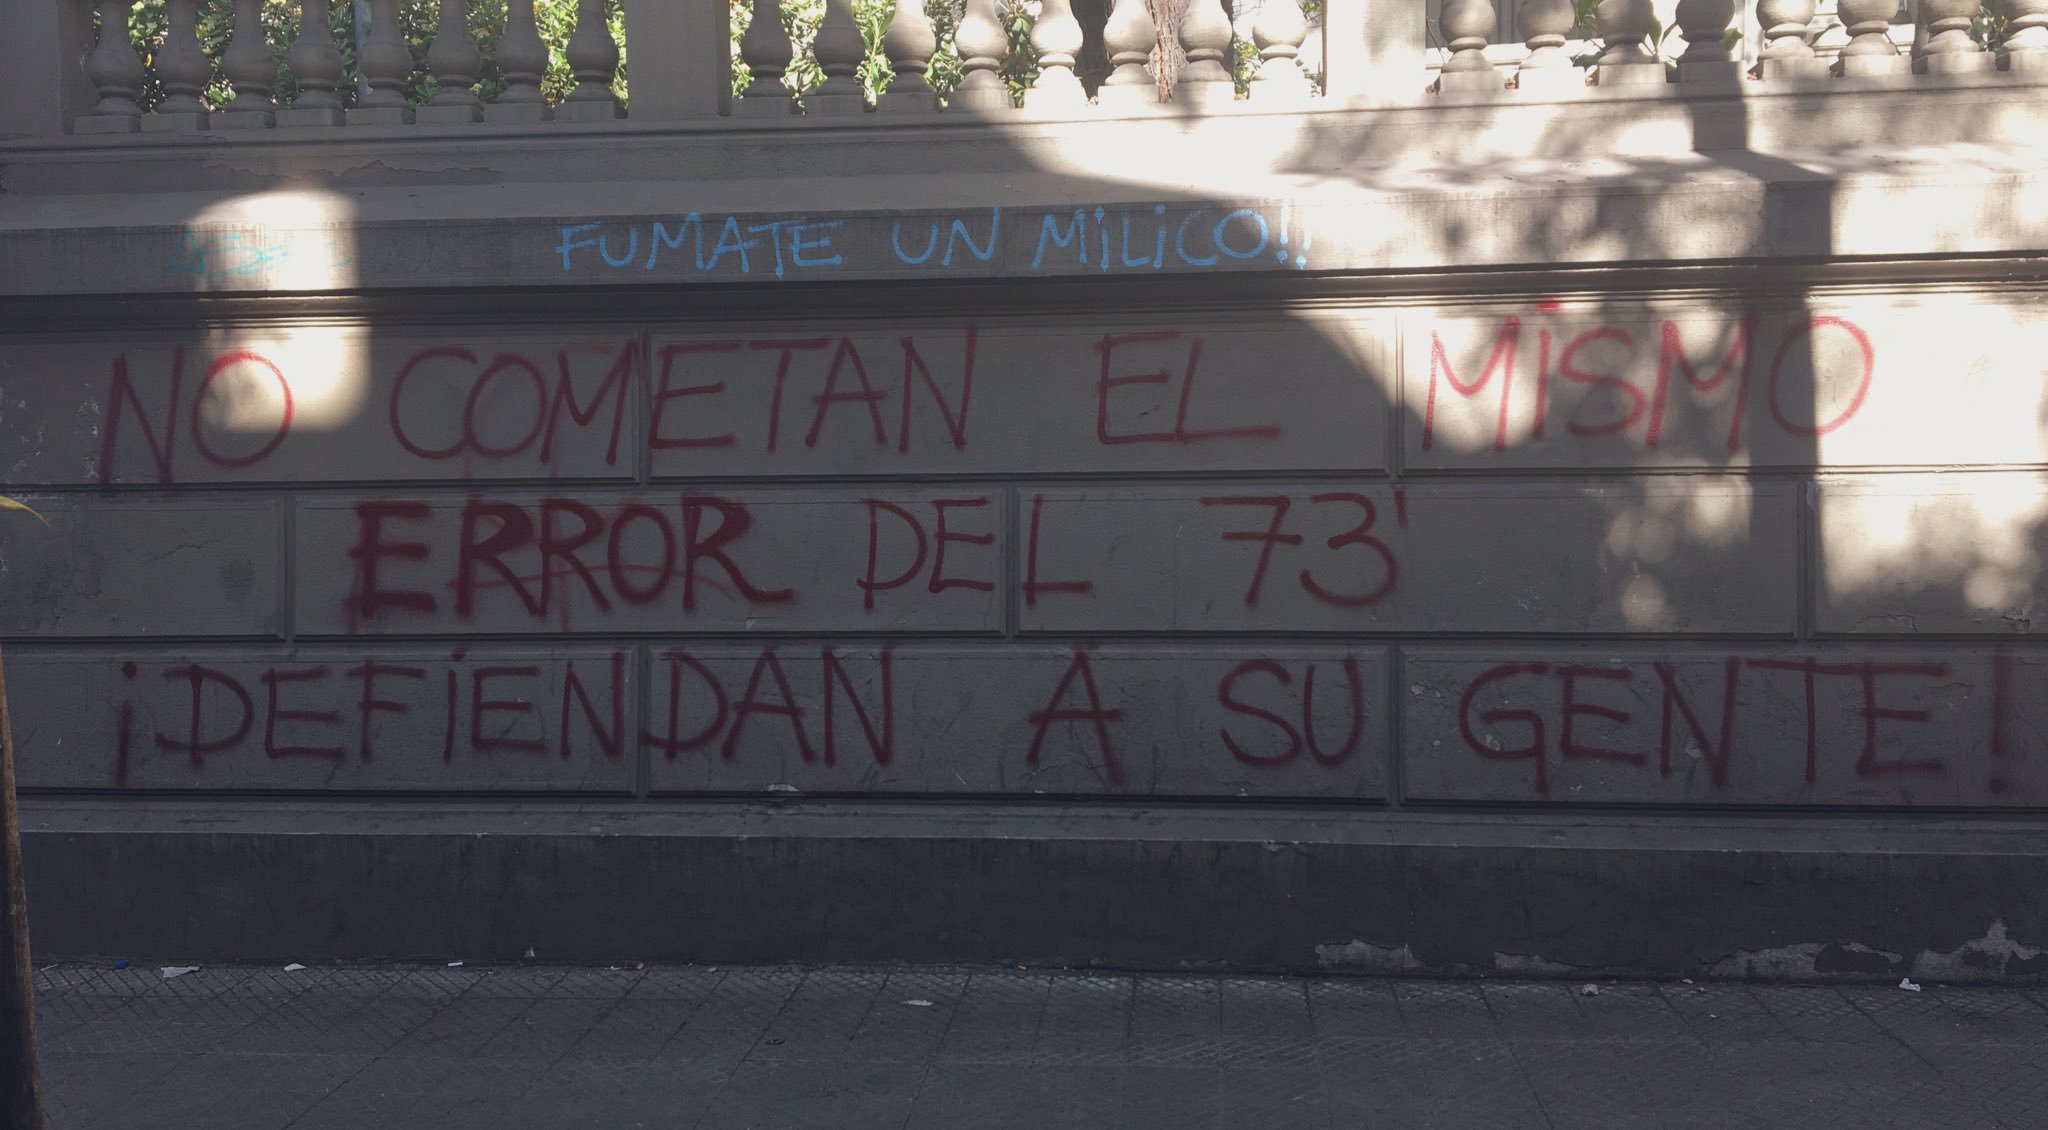 FUMATE UN MiLiCO!!
NO COMETAN EL MiSMO
ERROR DEL 73'
¡DEFiENDAN A SU GENTE!